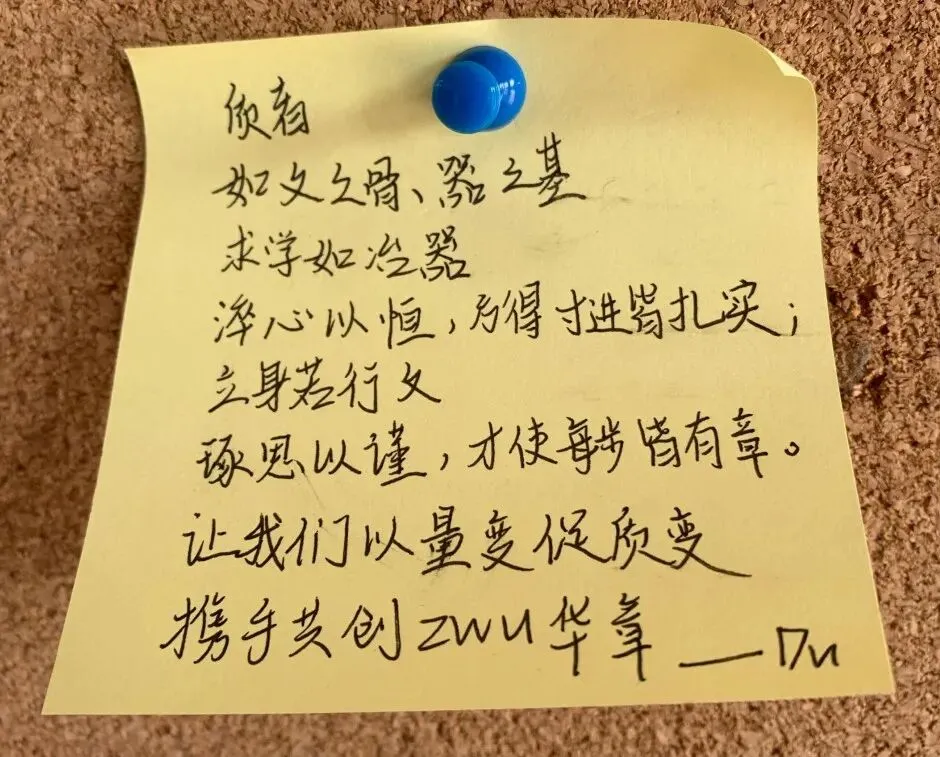 质者
如文之骨、器之基
求学如冶器
淬心以恒，方得寸进皆扎实；
立身若行文
琢思以谨，才使每步皆有章。
让我们以量变促质变
携手共创ZWU华章 ——Du